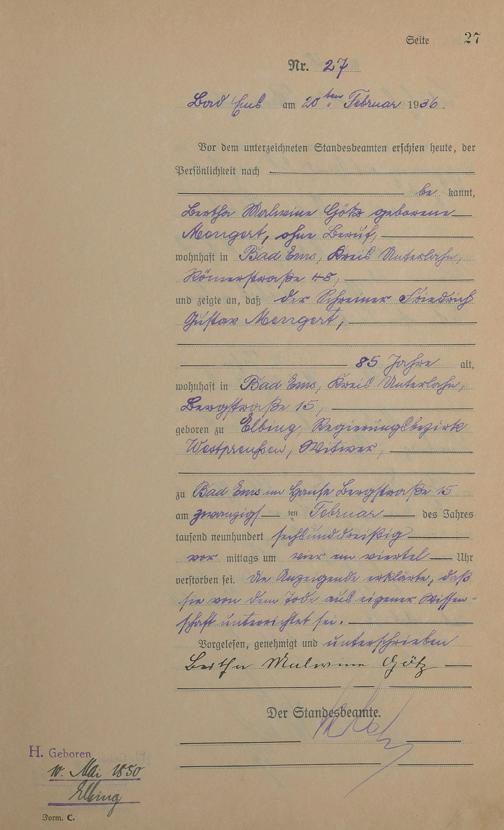 Seite 27
Nr. 27
Bad Ems am 20ten Februar 1936.
Vor dem unterzeichneten Standesbeamten erschien heute, der
Persönlichkeit nach
be kannt,
Bertha Malwine Götz geborene
Mengert, ohne Beruf,
wohnhaft in Bad Ems, Kreis Unterlahn,
Römerstraße 48,
und zeigte an, daß der Schreiner Friedrich
Gustav Mengert,
85 Jahre alt,
wohnhaft in Bad Ems, Kreis Unterlahn,
Bergstraße 15,
geboren zu Elbing Regierungsbezirk
Westpreußen, Witwer,
zu Bad Ems im Hause Bergstraße 15
am zwanzigst ten Februar des Jahres
tausend neunhundert sechsunddreißig
vor mittags um vier ein viertel Uhr
verstorben sei. Die Anzeigende erklärte, daß
sie von dem Tode aus eigener Wissen-
schaft unterrichtet sei.
Vorgelesen, genehmigt und unterschrieben
Bertha Malwine Götz
Der Standesbeamte.
H. Geboren
10. Mai 1850
Elbing
Form. C.